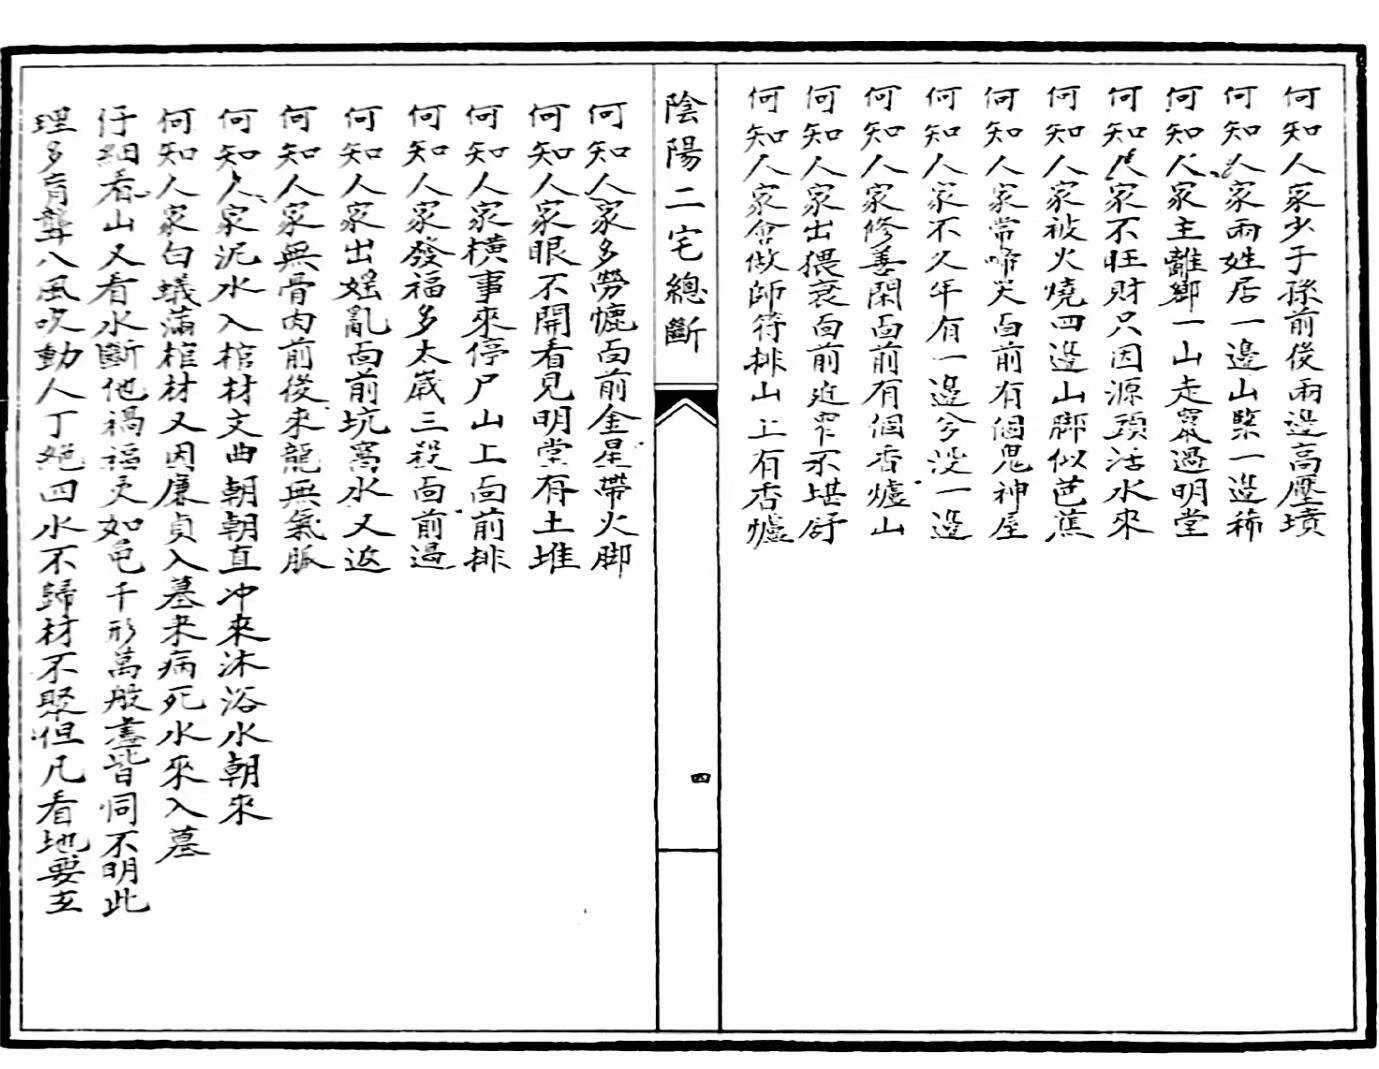 何知人家少子孫前後兩邊高壓墳
何知人家兩姓居一邊山緊一邊稀
何知人家主離鄉一山走竄過明堂
何知人家不旺財只因源頭活水來
何知人家被火燒四邊山脚似芭蕉
何知人家常啼哭面前有個鬼神屋
何知人家不久年有一邊兮沒一邊
何知人家修善閑面前有個香爐山
何知人家出猥衰面前迯窄不堪舒
何知人家會做師符排山上有香爐
陰陽二宅總斷
四
何知人家多勞慌面前金星帶火脚
何知人家眼不開看見明堂有土堆
何知人家橫事來停尸山上面前排
何知人家發福多太歲三殺面前過
何知人家出婬亂面前坑窩水又返
何知人家無骨肉前後來龍無氣脈
何知人家泥水入棺材文曲朝朝直冲來沐浴水朝來
何知人家白蟻滿棺材又因廉貞入墓来病死水來入墓
仔細看山又看水斷他禍福更如千形萬般盡皆同不明此
理多盲聾八風吹動人丁絕四水不歸材不聚但凡看地要玄